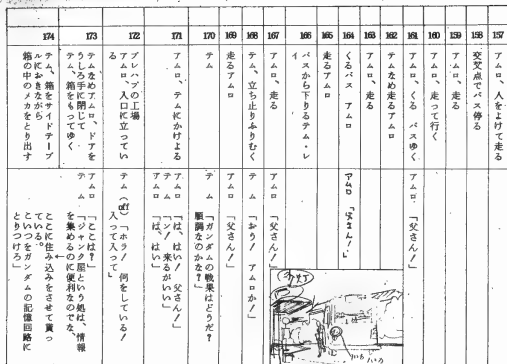 157
アムロ、人をよけて走る
158
交差点でバス停る
159
アムロ、走る
160
アムロ、走って行く
161
アムロ、くる バスゆく
アムロ 「父さん！」
162
テムなめ走るアムロ
163
アムロ、走る
164
くるバス アムロ
アムロ 「父さん！」
165
走るアムロ
166
バスから下りるテム・レイ
167
アムロ、走る
アムロ 「父さん！」
168
テム、立ち止りふりむく
テム 「おう！ アムロか！」
169
走るアムロ
アムロ 「父さん！」
170
テム
テム 「ガンダムの戦果はどうだ？
順調なのかな？」
171
アムロ、テムにかけよる
アムロ 「は、はい！ 父さん！」
テム 「ン！ 来るがいい」
アムロ 「は、はい」
172
プレハブの工場
アムロ、入口に立っている
テム (off) 「ホラ！ 何をしている！
入って入って」
173
テムなめアムロ、ドアを
うしろ手に閉じて
テム、箱をもってゆく
アムロ 「ここは？」
テム 「ジャンク屋という処は、情報
を集めるのに便利なのでな、
174
テム、箱をサイドテーブ
ルにおきながら
箱の中のメカをとり出す
ここに住み込みをさせて貰っ
ている。
こいつをガンダムの記憶回路に
とりつけろ」